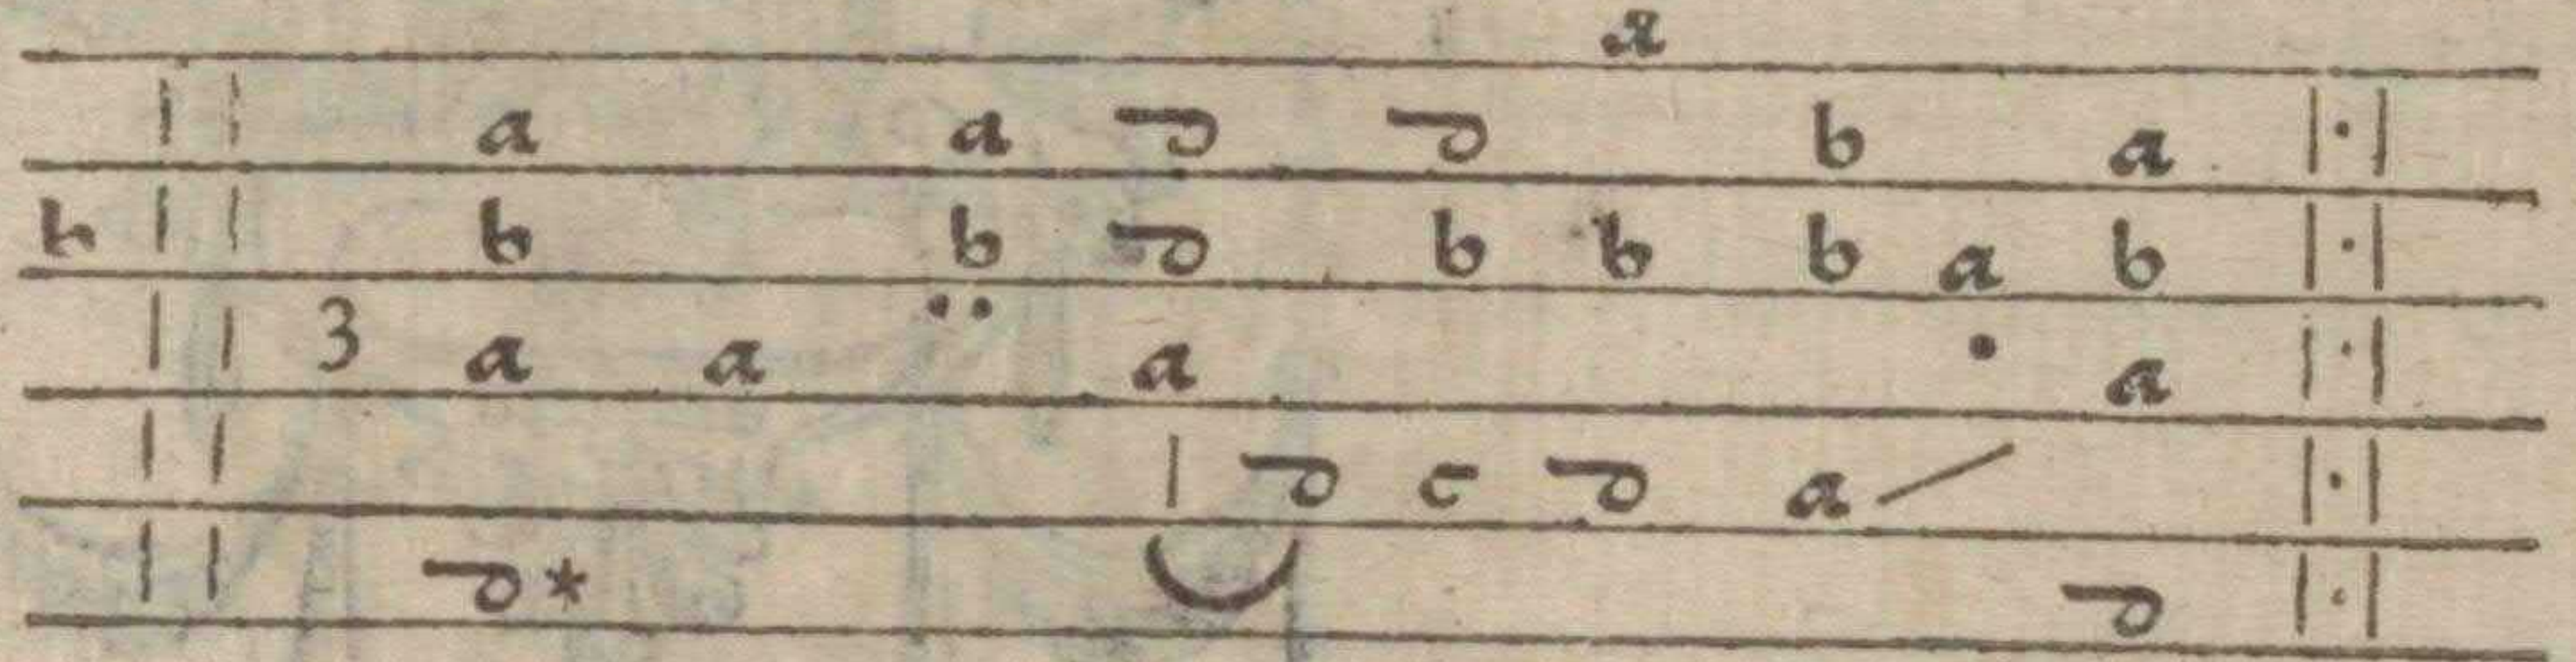 a
a a d d b a
h b b d b b b a b
3 a a a a
d c d a
d* d